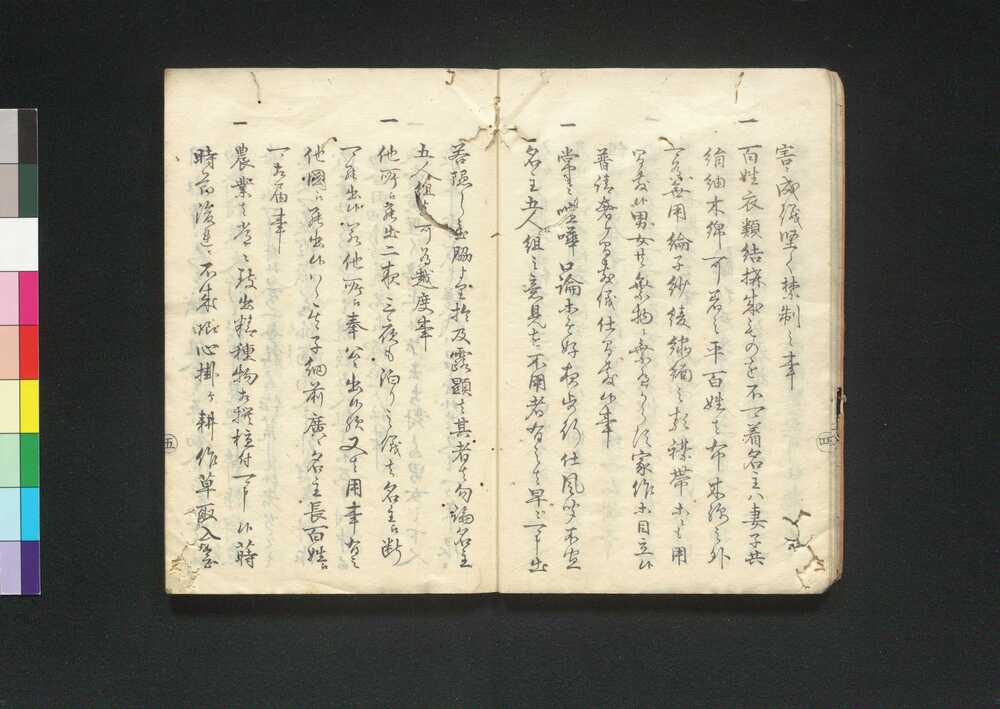 害ニ成儀堅く禁制之事
一 百姓衣類結構成ものを不可着名主ハ妻子共
絹紬木綿可着之平百姓は布木綿之外
不可着用綸子紗綾縮緬之類襟帯ニも用
間敷候男女共乗物ニ乗へからす家作等目立候
普請奢ケ間敷儀仕間敷候事
一 常々喧嘩口論等を好夜歩行仕風聞不宜
名主五人組之意見を不用者有之は早々可申出
若隠し置脇より於及露顕は其者は勿論名主
五人組共可為越度事
一 他所江罷出二夜三夜も泊り之儀は名主江断
可罷出候若他所江奉公出候歟又は用事有之
他国江罷出候ハヽ其子細前廣名主長百姓江
可相届事
一 農業を常々致出精種物等撰植付可申候蒔
時節後連不成様心掛ケ耕作草取入念
四
五